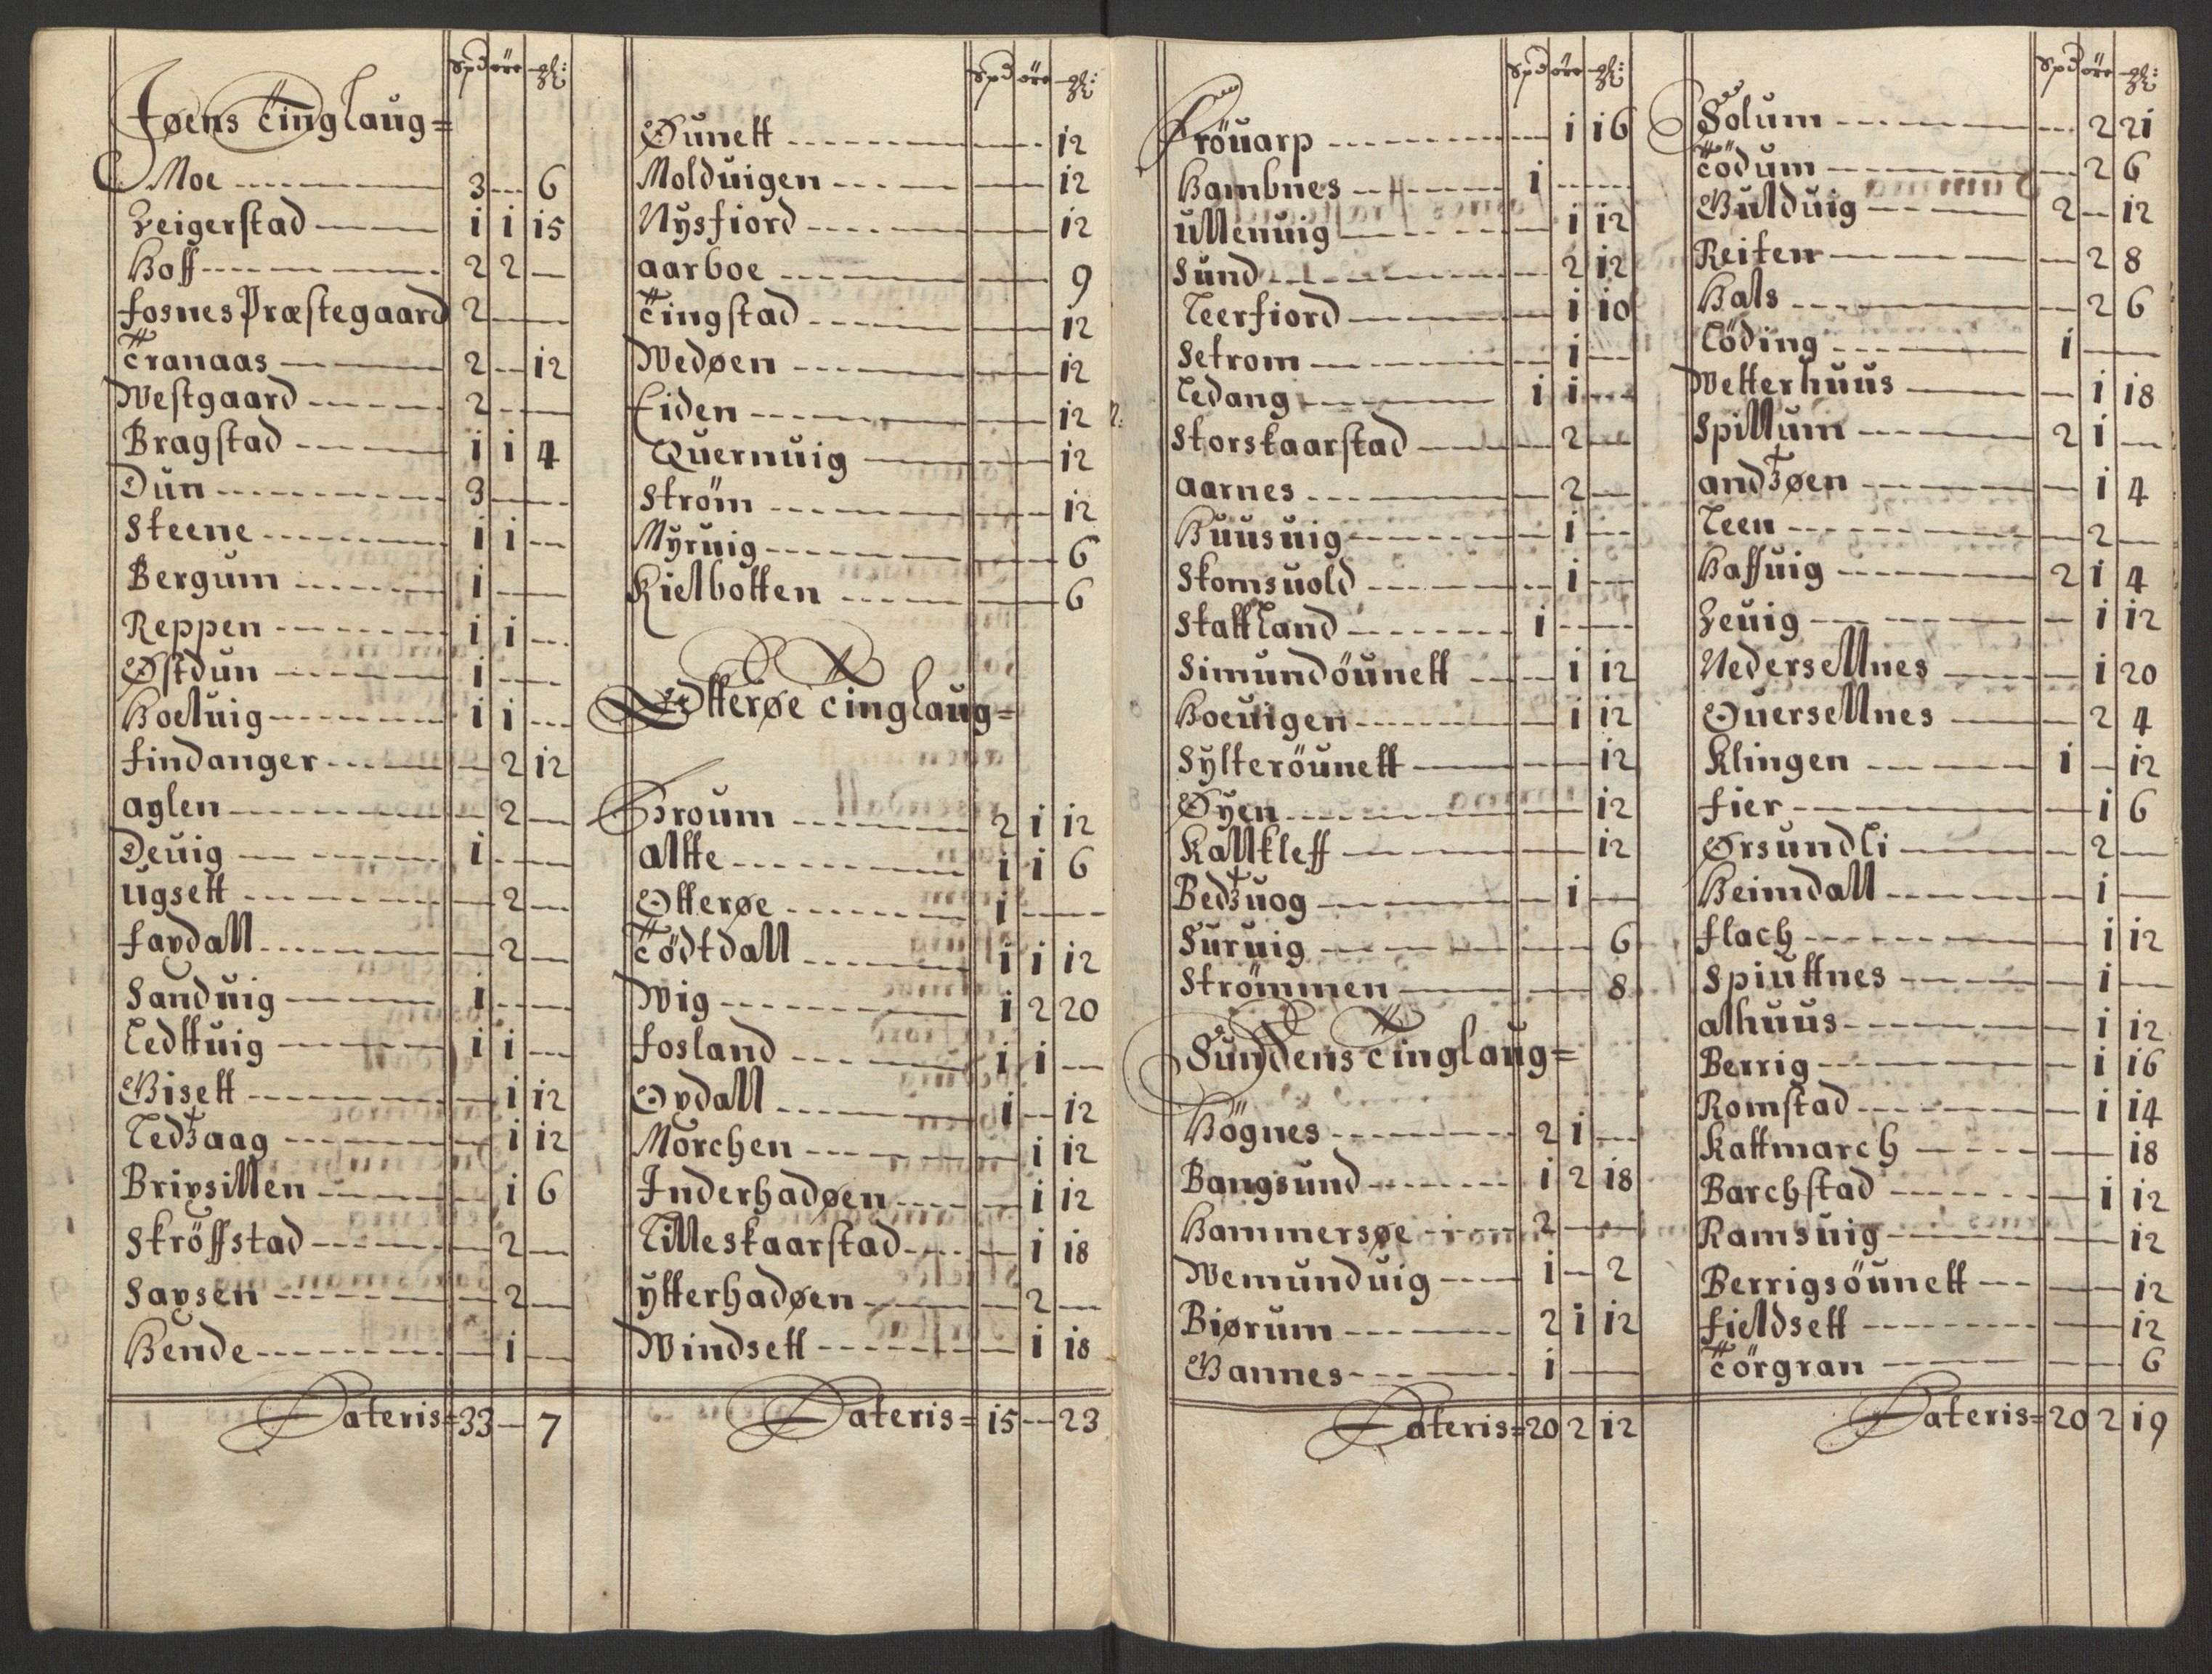 Spd öre gl:
Jøens Tinglaug=
Moe 3 - 6
Leigerstad 1 1 15
Hoff 2 2 -
Fosnes Præstegaard 2 - -
Tranaas 2 - 12
Westgaard 2 - -
Bragstad 1 1 4
Dun 3 - -
Steene 1 1 -
Bergum 1 - -
Reppen 1 1 -
Østdun 1 - -
Hoeluig 1 1 -
Findanger - 2 12
Aglen - 2 -
Deuig 1 - -
Ugsett - 2 -
Faudall - 2 -
Sanduig 1 - -
Ledtuig 1 1 -
Gisett - 1 12
Ledzaag - 1 12
Brivsillen - 1 6
Ströffstad - 2 -
Savsen - 2 -
Hende - 1 -
Lateris= 33 - 7
Spd öre gl:
Øunett - - 12
Molduigen - - 12
Nysfiord - - 12
Aarboe - - 9
Tingstad - - 12
Wedøen - - 12
Eiden - - 12
Quernuig - - 12
Ström - - 12
Myruig - - 6
Kielbotten - - 6
Otterøe Tinglaug=
Groum 2 1 12
Altte 1 1 6
Otterøe 1 - -
Tödtdall 1 1 12
Wig 1 2 20
Fosland 1 1 -
Ovdall 1 - 12
Morchen - 1 12
Inderhadøen - 1 12
Lilleskaarstad - 1 18
Ytterhadøen - 2 -
Windsett - 1 18
Lateris= 15 - 23
Spd öre gl:
Fröuarp - 1 16
Hambnes 1 - -
Ullenuig - 1 12
Sund - 2 12
Leerfiord - 1 10
Setrom - 1 -
Ledang 1 1 -
Storskaarstad - 2 -
Aarnes - 2 -
Huusuig - 1 -
Skomsuold - 1 -
Stattland 1 - -
Simundöunett - 1 12
Hoeuigen - 1 12
Sylteröunett - - 12
Øyen - - 12
Kallkleff - - 12
Bedzuog - 1 -
Suruig - - 6
Strömmen - - 8
Sundens Tinglaug=
Högnes 2 1 -
Bangsund 1 2 18
Hammersøe 2 - -
Wemunduig 1 - 2
Biørum 2 1 12
Gannes 1 - -
Lateris= 20 2 12
Spd öre gl:
Solum - 2 21
Tödum - 2 6
Gulduig 2 - 12
Reiten - 2 8
Hals - 2 6
Löding 1 - -
Wetterhuus - 1 18
Spillum 2 1 -
Andzøen - 1 4
Leen - 2 -
Haffuig 2 1 4
Leuig - 1 12
Nedersellnes - 1 20
Ouersellnes - 2 4
Klingen 1 - 12
Fier - 1 6
Ørsundli - 2 -
Heimdall - 1 -
Flach - 1 12
Spiuttnes - 1 -
Alhuus - 1 12
Berrig - 1 16
Romstad - 1 14
Kattmarch - - 18
Barchstad - 1 12
Ramsuig - - 12
Berrigsöunett - - 12
Fieldsett - - 12
Törgran - - 6
Lateris= 20 2 19